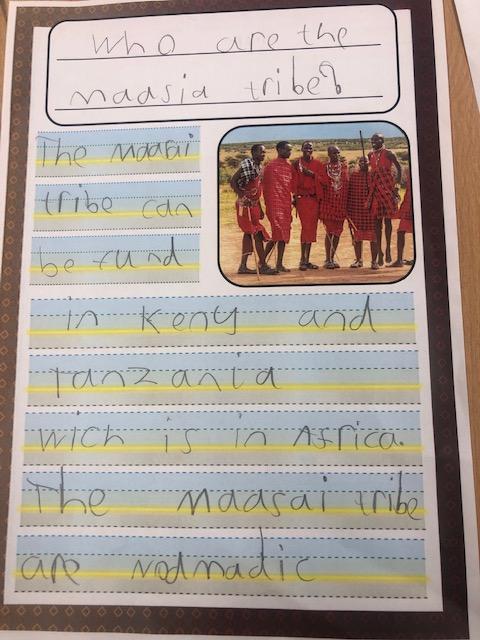 Who are the
maasia tribe?
The maasai
tribe can
be fund
in Keny and
Tanzania
wich is in Africa.
The Maasai tribe
are Nodmadic